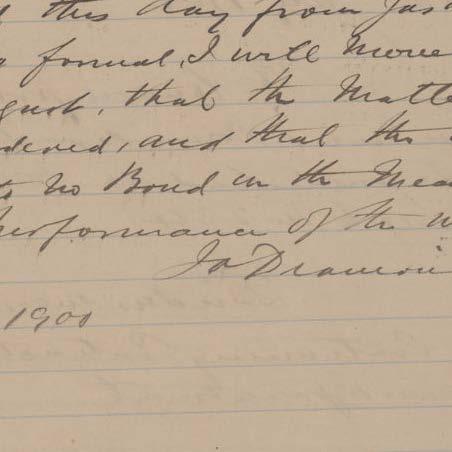 this day from Jas
formal, I will move
gust, that the Matte
dered, and that the
to no Bond in the Mea
Performance of the w
Jo
1900